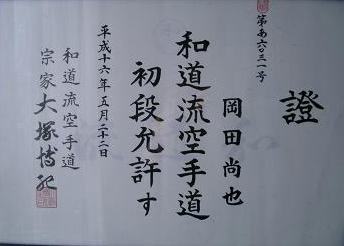 第あ六〇三一号
證
岡田尚也
和道流空手道
初段允許す
平成十六年五月二十二日
和道流空手道
宗家大塚博紀